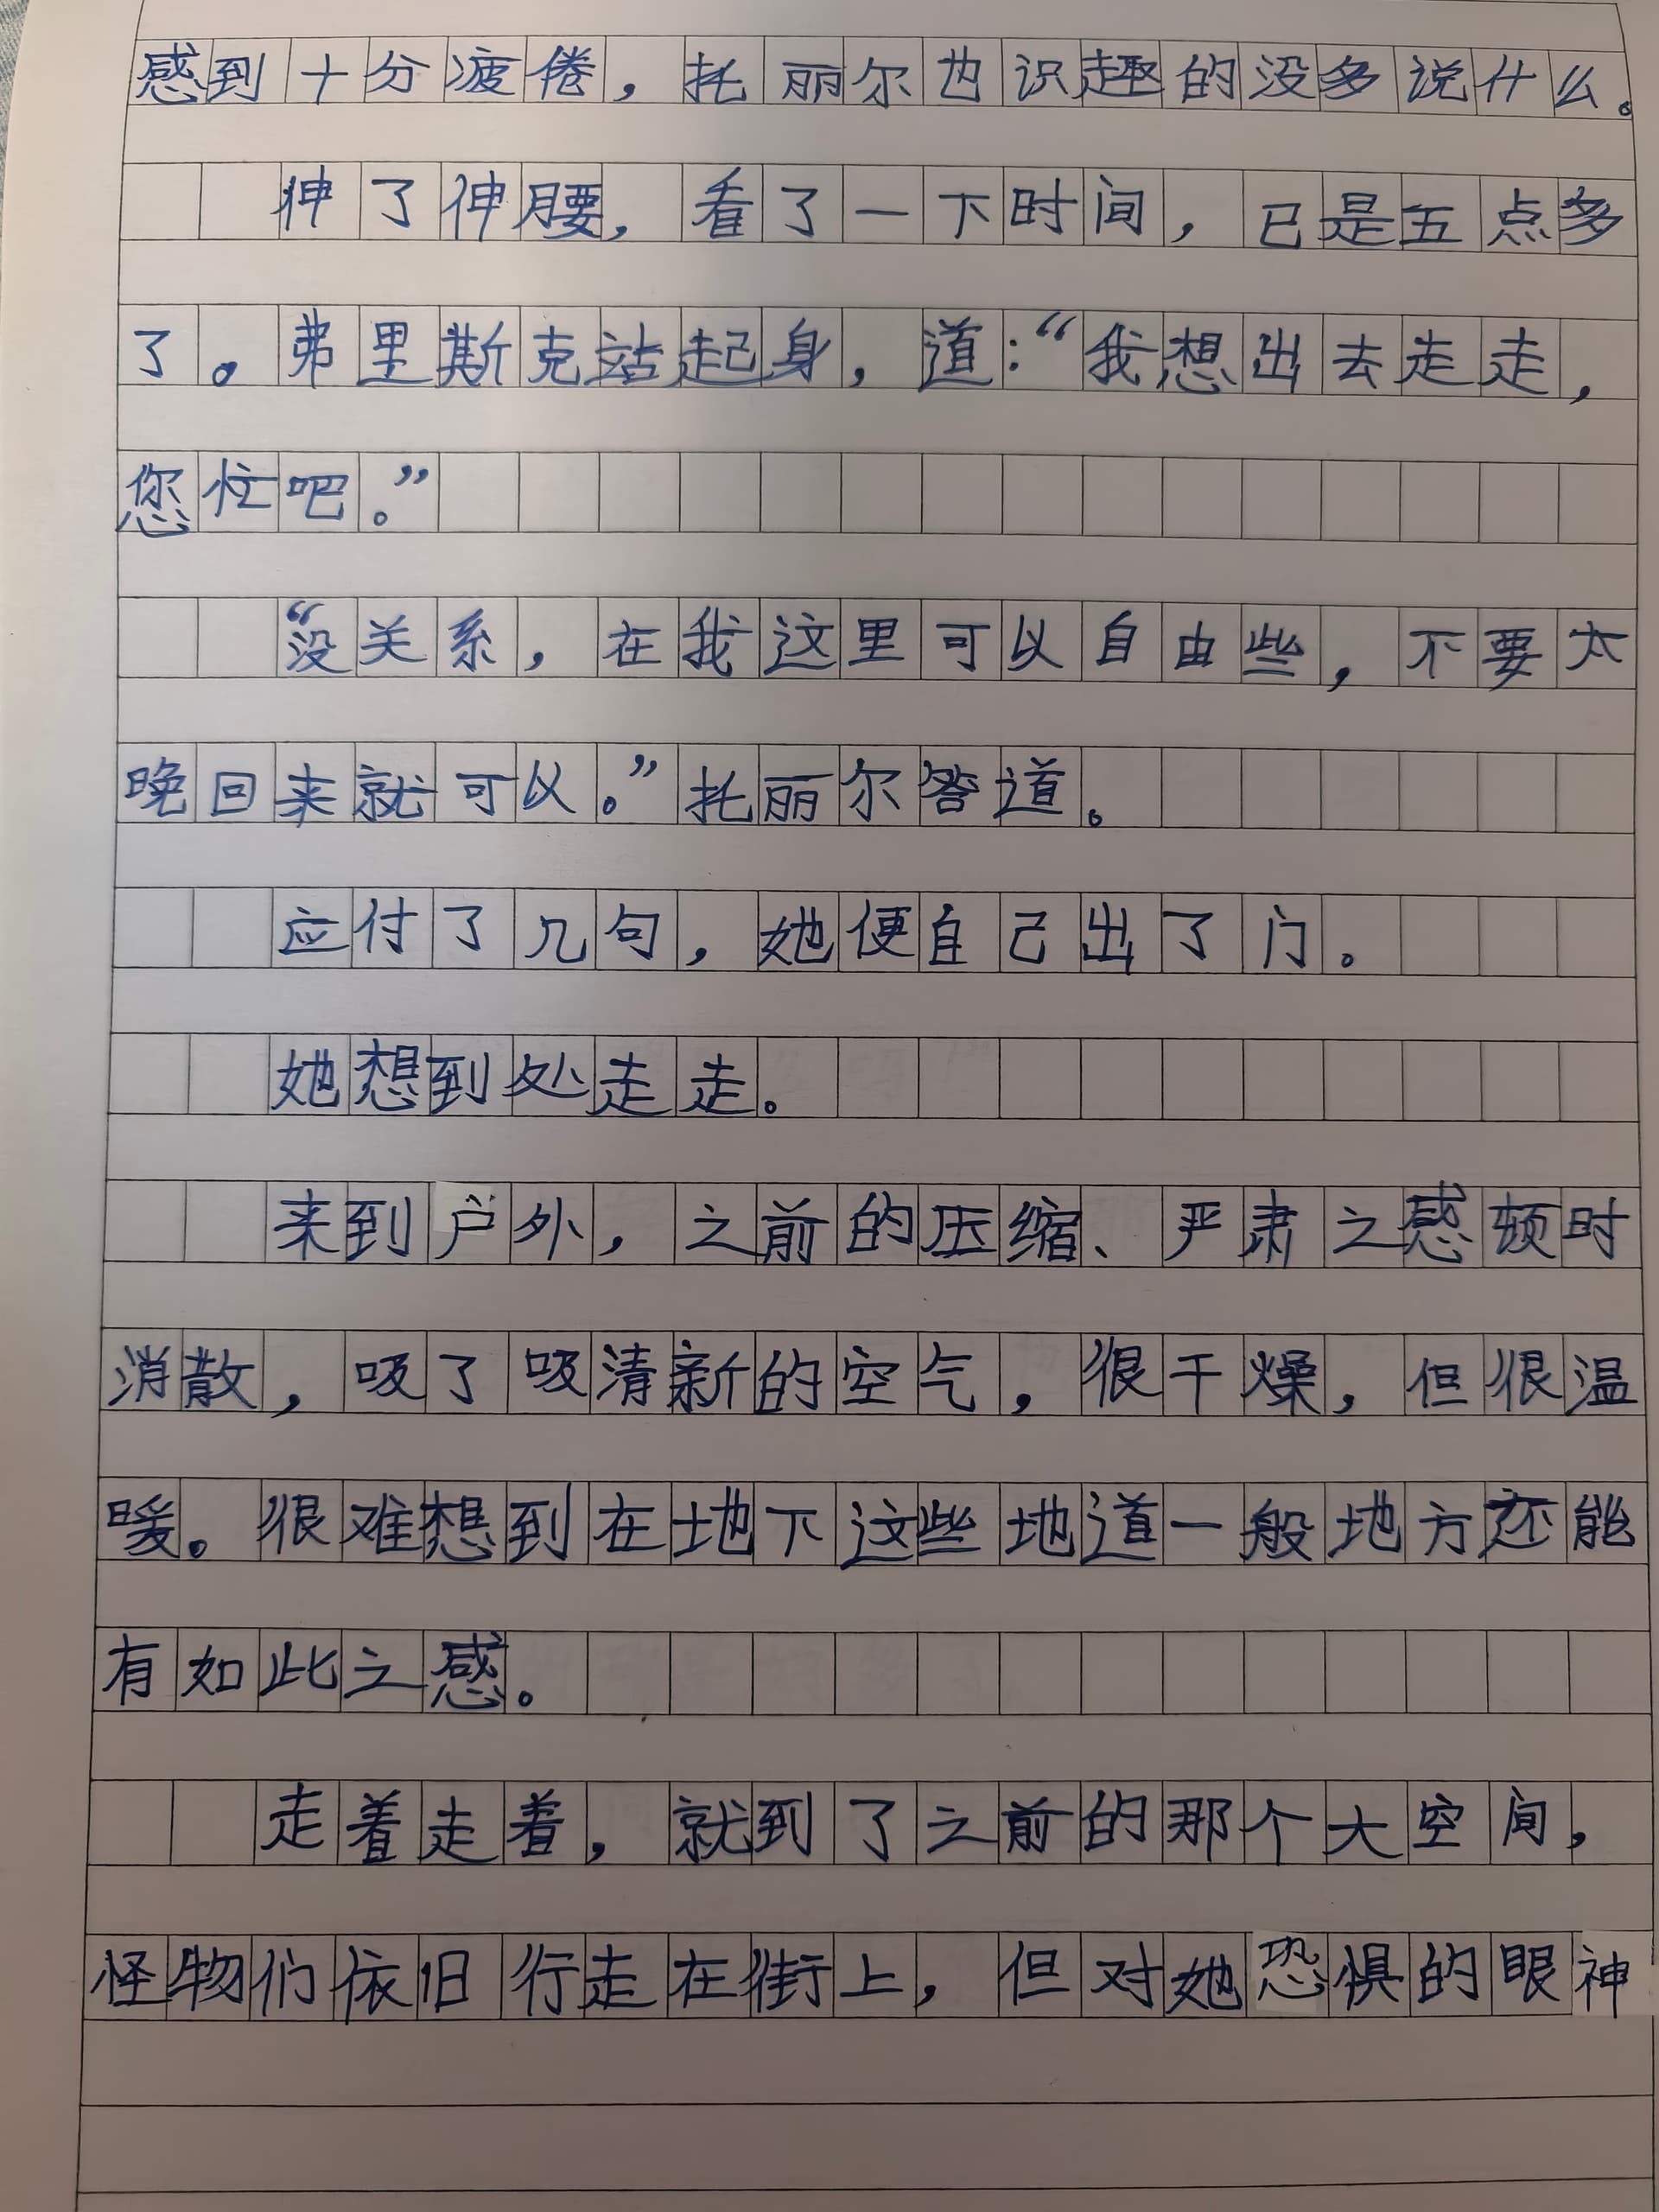 感到十分疲倦，托丽尔也识趣的没多说什么。
伸了伸腰，看了一下时间，已是五点多
了。弗里斯克站起身，道：“我想出去走走，
您忙吧。”
“没关系，在我这里可以自由些，不要太
晚回来就可以。”托丽尔答道。
应付了几句，她便自己出了门。
她想到处走走。
来到户外，之前的压缩、严肃之感顿时
消散，吸了吸清新的空气，很干燥，但很温
暖。很难想到在地下这些地道一般地方还能
有如此之感。
走着走着，就到了之前的那个大空间，
怪物们依旧行走在街上，但对她恐惧的眼神